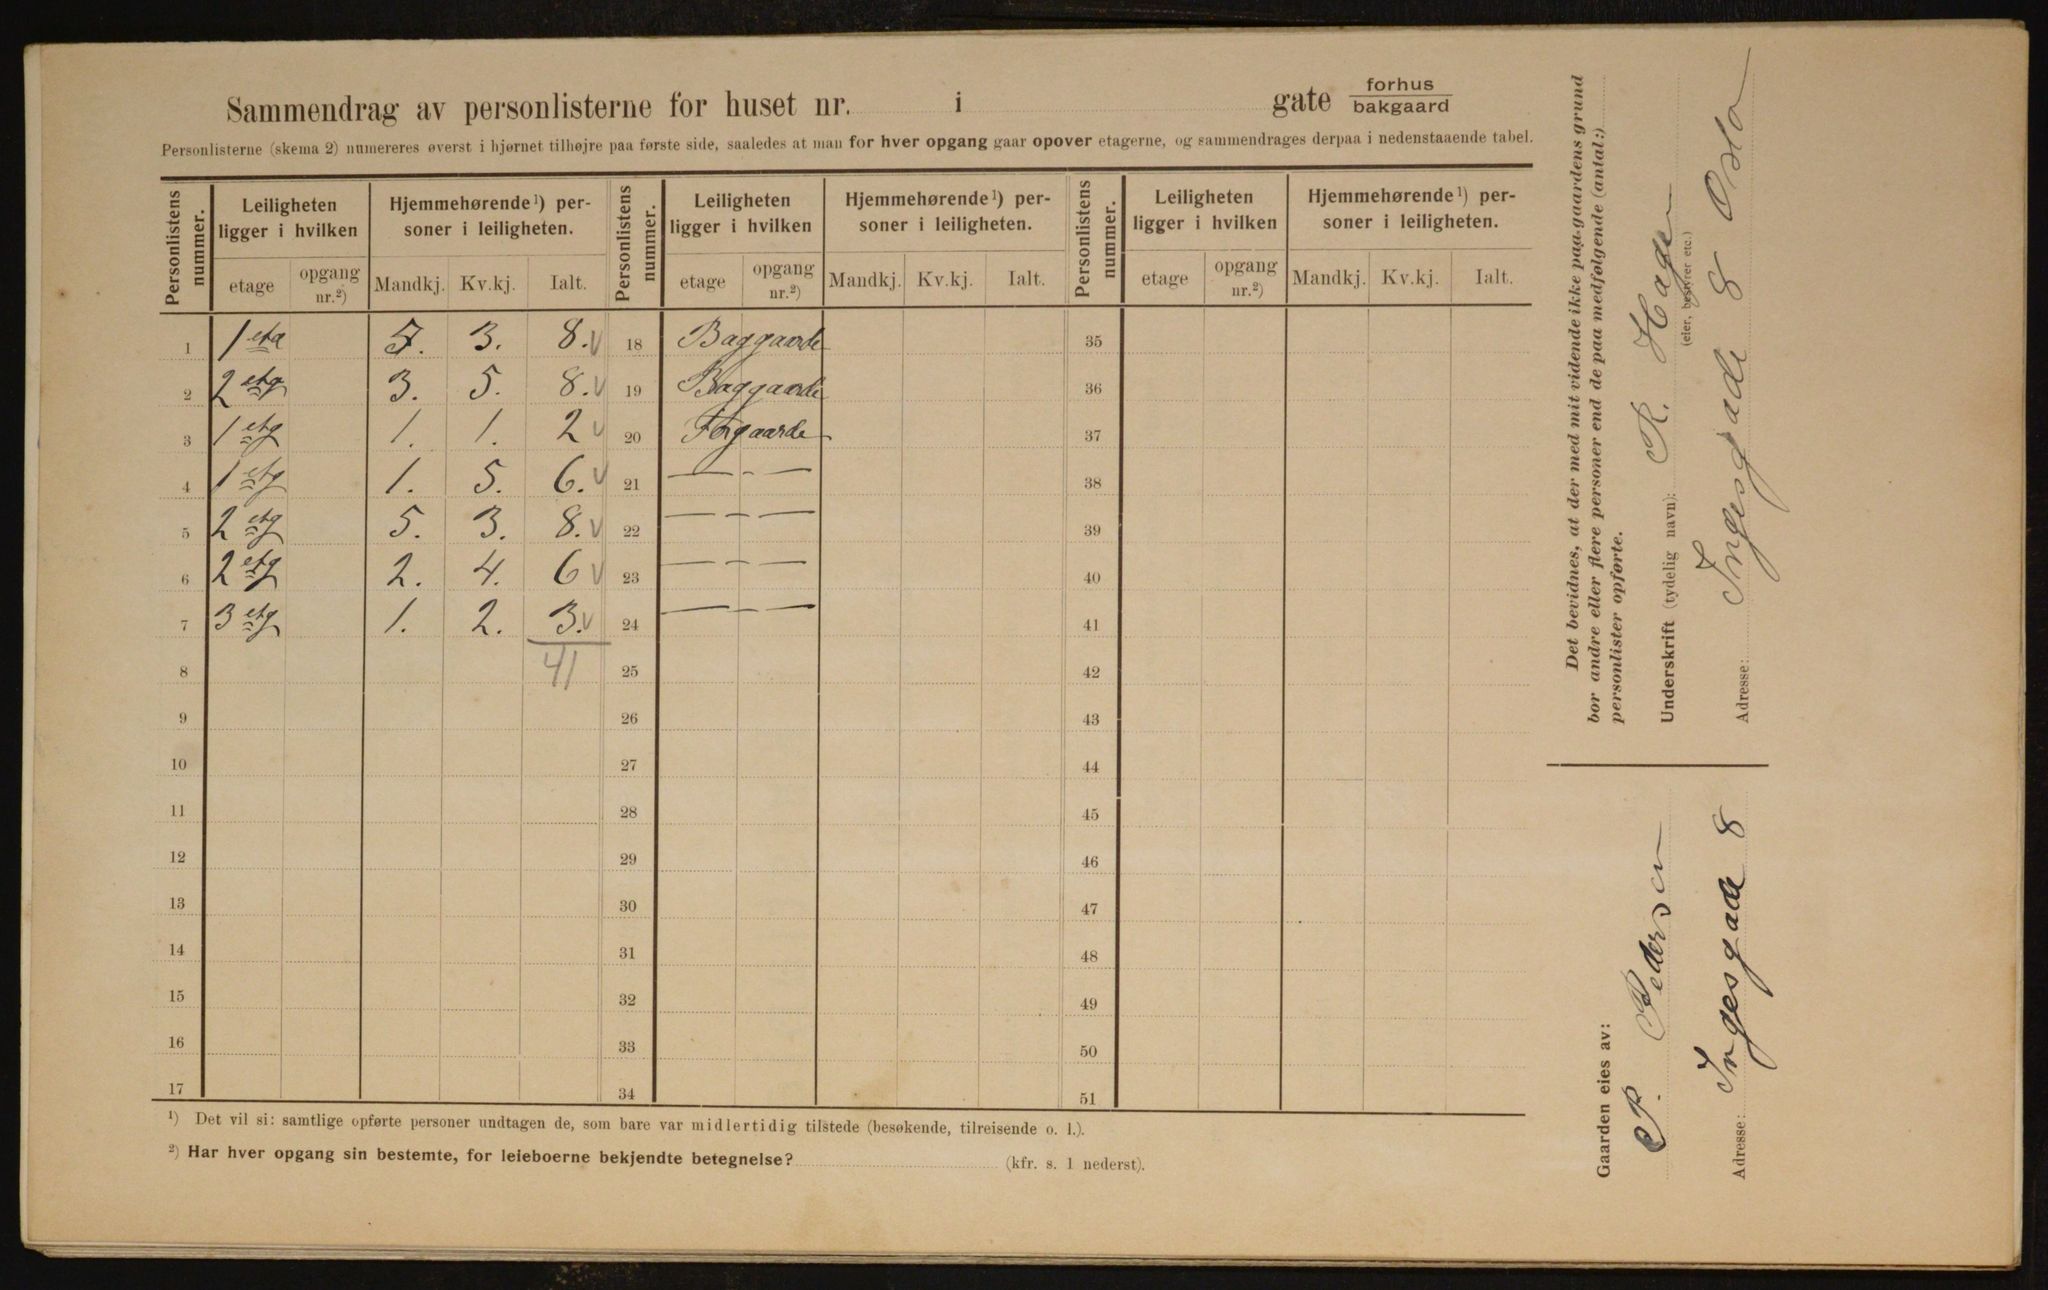 Sammendrag av personlisterne for huset nr. i gate forhus
bakgaard
Personlisterne (skema 2) numereres øverst i hjørnet tilhøjre paa første side, saaledes at man for hver opgang gaar opover etagerne, og sammendrages derpaa i nedenstaaende tabel.
Personlistens nummer. Leiligheten ligger i hvilken Hjemmehørende¹) personer i leiligheten. Personlistens nummer. Leiligheten ligger i hvilken Hjemmehørende¹) personer i leiligheten. Personlistens nummer. Leiligheten ligger i hvilken Hjemmehørende¹) personer i leiligheten.
etage opgang nr.²) Mandkj. Kv.kj. Ialt. etage opgang nr.²) Mandkj. Kv.kj. Ialt. etage opgang nr.²) Mandkj. Kv.kj. Ialt.
1 1 eta 5. 3. 8. 18 Baggaarde 35
2 2 etg 3. 5. 8. 19 Baggaarde 36
3 1 etg 1. 1. 2 20 Forgaarde 37
4 1 etg 1. 5. 6. 21 — - — 38
5 2 etg 5. 3. 8. 22 — - — 39
6 2 etg 2. 4. 6 23 — - — 40
7 3 etg 1. 2. 3. 24 — - — 41
8 41 25 42
9 26 43
10 27 44
11 28 45
12 29 46
13 30 47
14 31 48
15 32 49
16 33 50
17 34 51
¹) Det vil si: samtlige opførte personer undtagen de, som bare var midlertidig tilstede (besøkende, tilreisende o. l.).
²) Har hver opgang sin bestemte, for leieboerne bekjendte betegnelse? (kfr. s. 1 nederst).
Det bevidnes, at der med mit vidende ikke paa gaardens grund
bor andre eller flere personer end de paa medfølgende (antal:)
personlister opførte.
Underskrift (tydelig navn): R. Hagen
(eier, bestyrer etc.)
Adresse: Ingesgade 8 Oslo
Gaarden eies av:
P. Pedersen
Adresse: Ingesgade 8